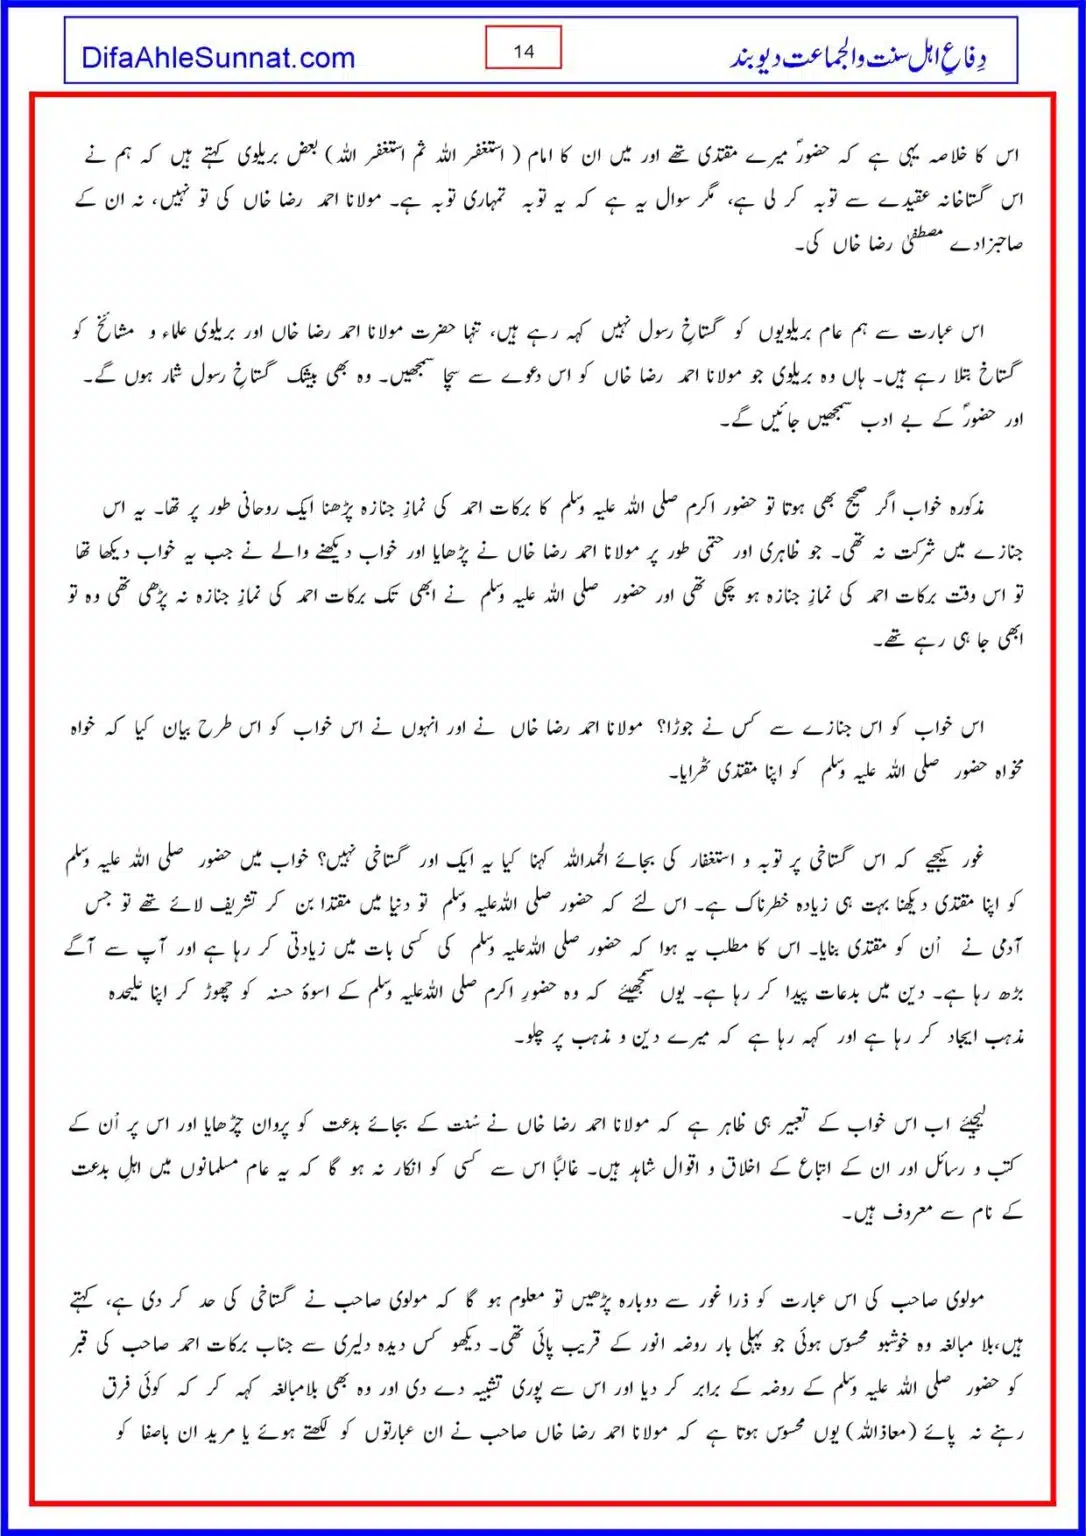 DifaAhleSunnat.com
14
دِفاعِ اہل سنت والجماعت دیوبند
اس کا خلاصہ یہی ہے کہ حضورؐ میرے مقتدی تھے اور میں ان کا امام ( استغفر اللہ ثم استغفر اللہ) بعض بریلوی کہتے ہیں کہ ہم نے
اس گستاخانہ عقیدے سے توبہ کر لی ہے، مگر سوال یہ ہے کہ یہ توبہ تمہاری توبہ ہے۔ مولانا احمد رضا خاں کی تو نہیں، نہ ان کے
صاحبزادے مصطفیٰ رضا خاں کی۔
اس عبارت سے ہم عام بریلویوں کو گستاخِ رسول نہیں کہہ رہے ہیں، تنہا حضرت مولانا احمد رضا خاں اور بریلوی علماء و مشائخ کو
گستاخ بتلا رہے ہیں۔ ہاں وہ بریلوی جو مولانا احمد رضا خاں کو اس دعوے سے سچا سمجھیں۔ وہ بھی بیشک گستاخِ رسول شمار ہوں گے۔
اور حضورؐ کے بے ادب سمجھیں جائیں گے۔
مذکورہ خواب اگر صحیح بھی ہوتا تو حضور اکرم صلی اللہ علیہ وسلم کا برکات احمد کی نمازِ جنازہ پڑھنا ایک روحانی طور پر تھا۔ یہ اس
جنازے میں شرکت نہ تھی۔ جو ظاہری اور حتمی طور پر مولانا احمد رضا خاں نے پڑھایا اور خواب دیکھنے والے نے جب یہ خواب دیکھا تھا
تو اس وقت برکات احمد کی نمازِ جنازہ ہو چکی تھی اور حضور صلی اللہ علیہ وسلم نے ابھی تک برکات احمد کی نمازِ جنازہ نہ پڑھی تھی وہ تو
ابھی جا ہی رہے تھے۔
اس خواب کو اس جنازے سے کس نے جوڑا؟ مولانا احمد رضا خاں نے اور انہوں نے اس خواب کو اس طرح بیان کیا کہ خواہ
مخواہ حضور صلی اللہ علیہ وسلم کو اپنا مقتدی ٹھرایا۔
غور کیجیے کہ اس گستاخی پر توبہ و استغفار کی بجائے الحمداللہ کہنا کیا یہ ایک اور گستاخی نہیں؟ خواب میں حضور صلی اللہ علیہ وسلم
کو اپنا مقتدی دیکھنا بہت ہی زیادہ خطرناک ہے۔ اس لئے کہ حضور صلی اللہ علیہ وسلم تو دنیا میں مقتدا بن کر تشریف لائے تھے تو جس
آدمی نے اُن کو مقتدی بنایا۔ اس کا مطلب یہ ہوا کہ حضور صلی اللہ علیہ وسلم کی کسی بات میں زیادتی کر رہا ہے اور آپ سے آگے
بڑھ رہا ہے۔ دین میں بدعات پیدا کر رہا ہے۔ یوں سمجھیئے کہ وہ حضورِ اکرم صلی اللہ علیہ وسلم کے اسوۂ حسنہ کو چھوڑ کر اپنا علیحدہ
مذہب ایجاد کر رہا ہے اور کہہ رہا ہے کہ میرے دین و مذہب پر چلو۔
لیجیئے اب اس خواب کے تعبیر ہی ظاہر ہے کہ مولانا احمد رضا خاں نے سُنت کے بجائے بدعت کو پروان چڑھایا اور اس پر اُن کے
کتب و رسائل اور ان کے اتباع کے اخلاق و اقوال شاہد ہیں۔ غالباً اس سے کسی کو انکار نہ ہو گا کہ یہ عام مسلمانوں میں اہلِ بدعت
کے نام سے معروف ہیں۔
مولوی صاحب کی اس عبارت کو ذرا غور سے دوبارہ پڑھیں تو معلوم ہو گا کہ مولوی صاحب نے گستاخی کی حد کر دی ہے، کہتے
ہیں،بلا مبالغہ وہ خوشبو محسوس ہوئی جو پہلی بار روضہ انور کے قریب پائی تھی۔ دیکھو کس دیدہ دلیری سے جناب برکات احمد صاحب کی قبر
کو حضور صلی اللہ علیہ وسلم کے روضہ کے برابر کر دیا اور اس سے پوری تشبیہ دے دی اور وہ بھی بلامبالغہ کہہ کر کہ کوئی فرق
رہنے نہ پائے (معاذاللہ) یوں محسوس ہوتا ہے کہ مولانا احمد رضا خاں صاحب نے ان عبارتوں کو لکھتے ہوئے یا مرید ان باصفا کو